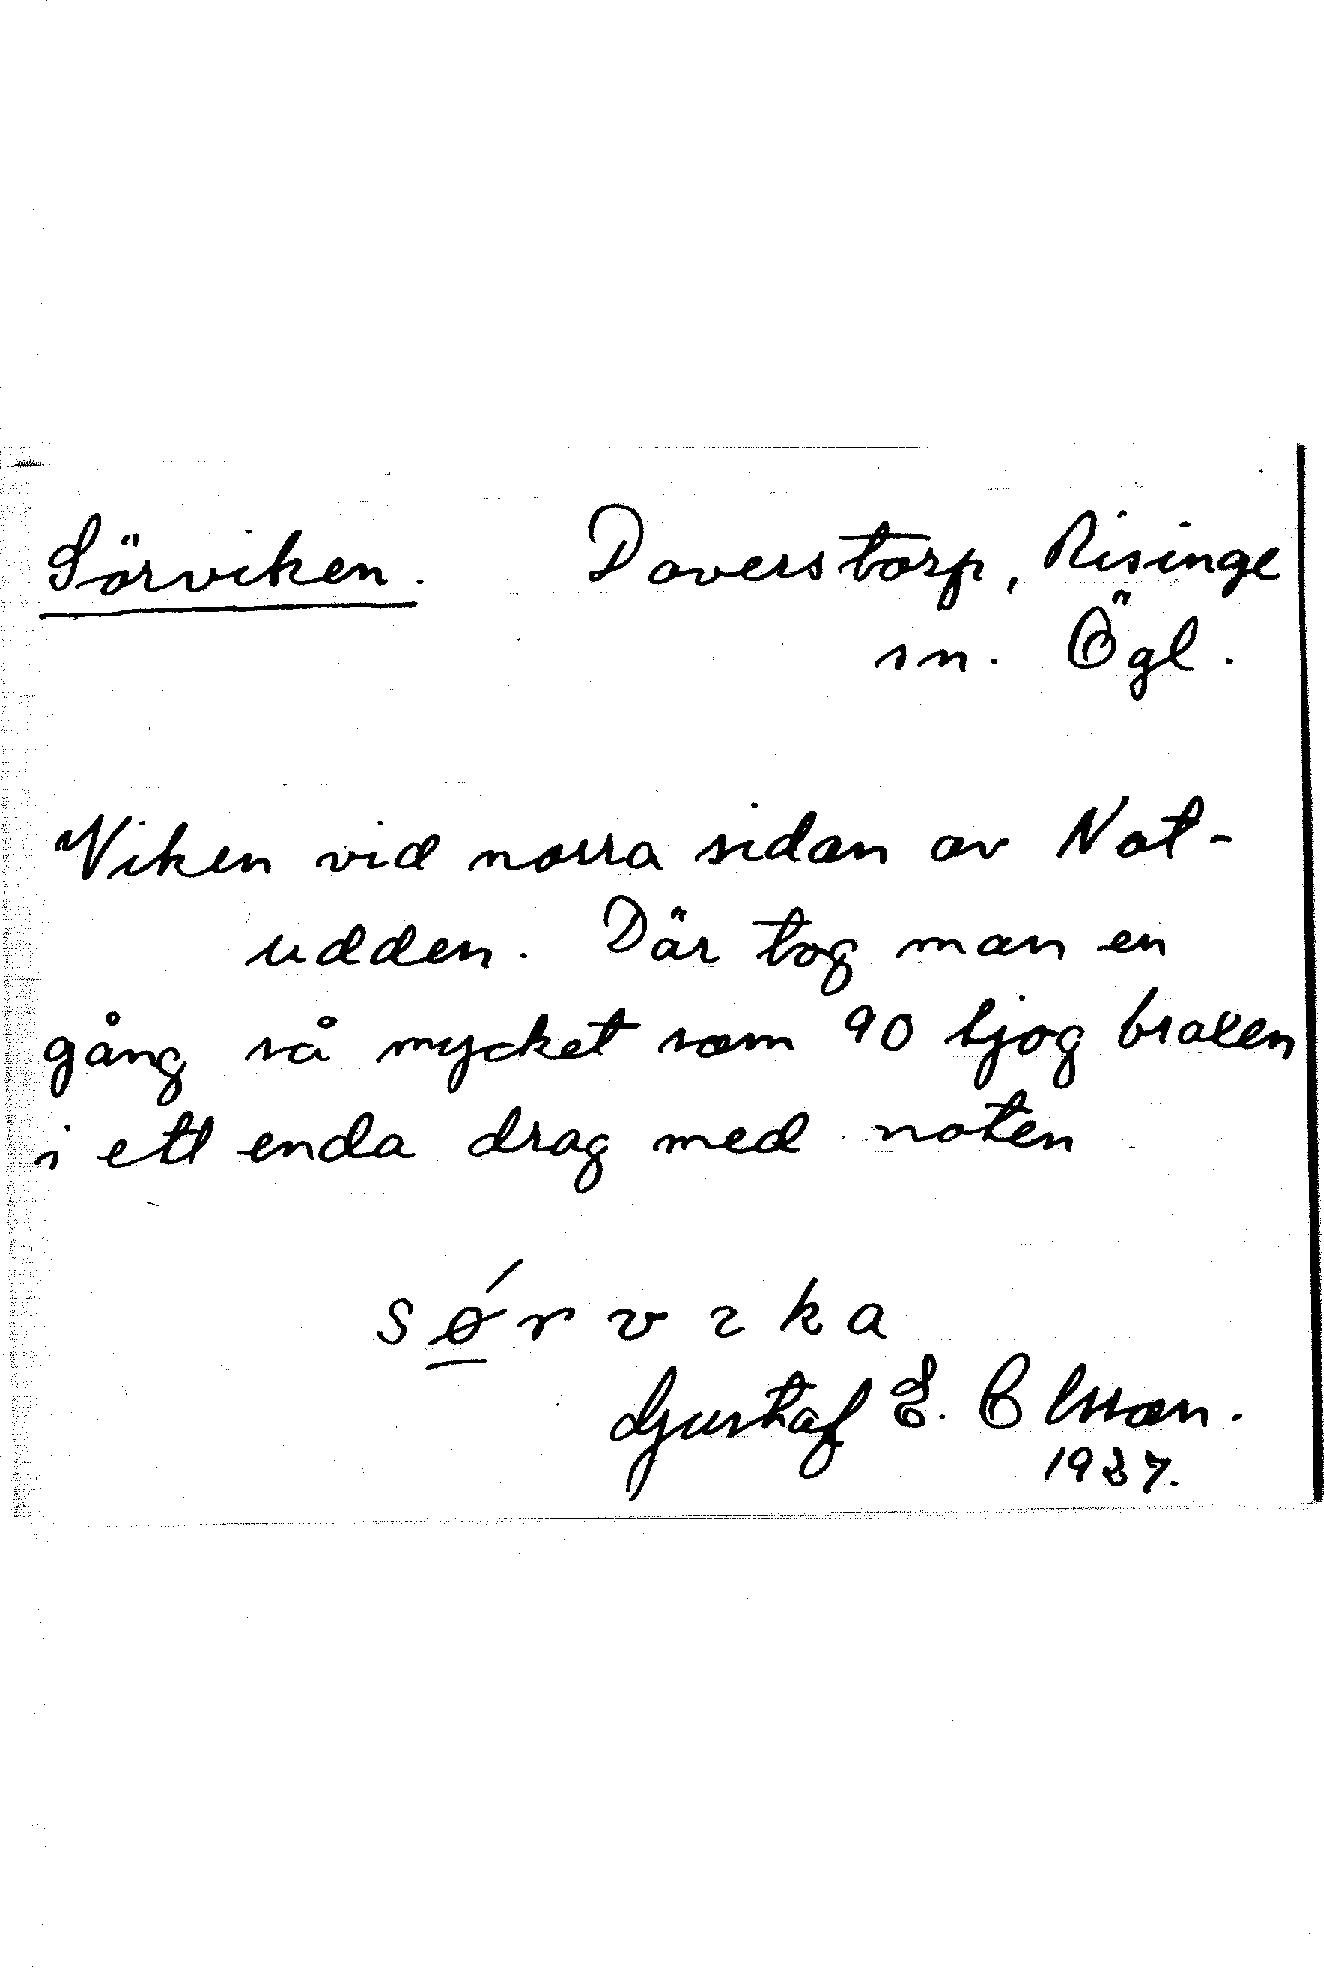 Sörviken. Doverstorp, Risinge
sn. Ögl.
Viken vid norra sidan av Not-
udden. Där tog man en
gång så mycket som 90 tjog braxen
i ett enda drag med noten
sǿrvika
Gustaf E. Olsson.
1937.